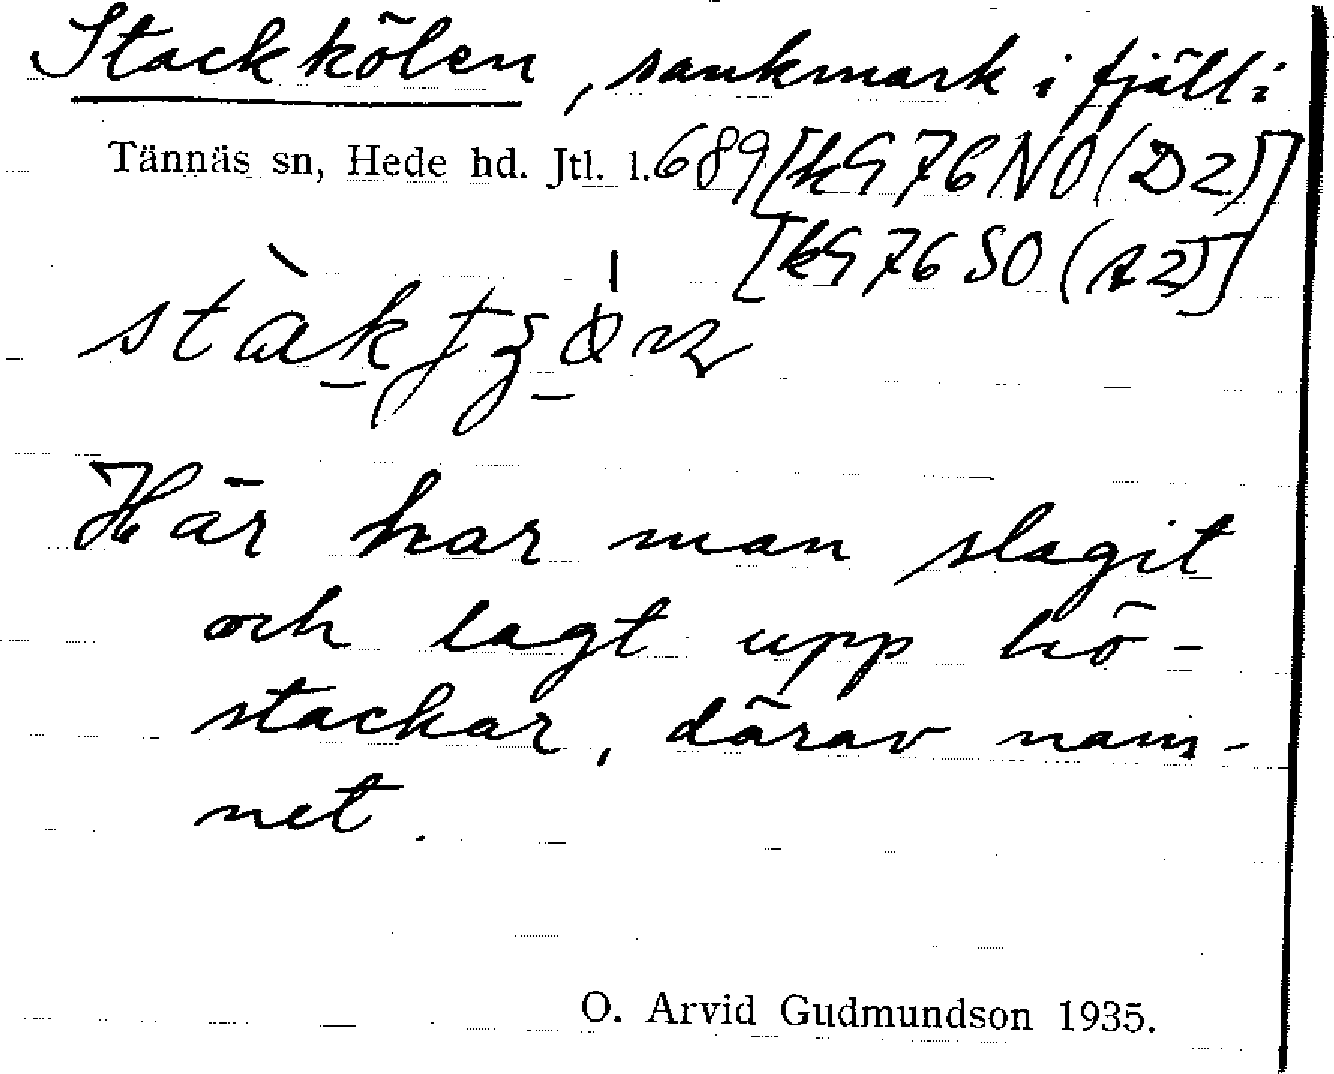 Stackkölen, sankmark i fjäll:
Tännäs sn, Hede hd. Jtl. l. 689 [kG 76 NO (D2)]
[kG 76 SO (A2)]
Här har man slagit
och lagt upp hö-
stackar, därav nam-
net.
O. Arvid Gudmundson 1935.